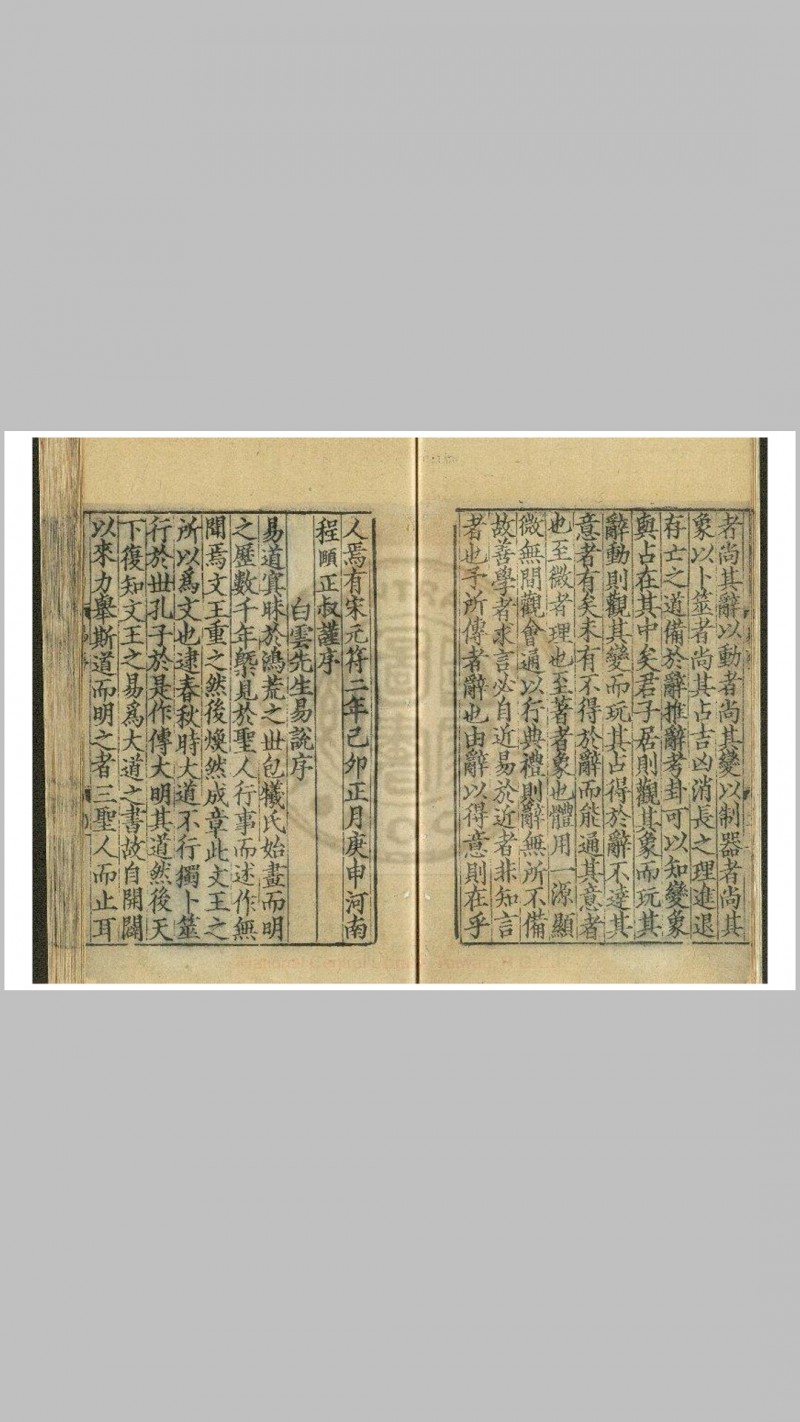 者尚其辭以動者尚其變以制器者尚其
象以卜筮者尚其占吉凶消長之理進退
存亡之道備於辭推辭考卦可以知變象
與占在其中矣君子居則觀其象而玩其
辭動則觀其變而玩其占得於辭不達其
意者有矣未有不得於辭而能通其意者
也至微者理也至著者象也體用一源顯
微無間觀會通以行典禮則辭無所不備
故善學者求言必自近易於近者非知言
者也予所傳者辭也由辭以得意則在乎
人焉有宋元符二年己卯正月庚申河南
程頤正叔謹序
白雲先生易說序
易道冥昧於鴻荒之世包犧氏始畫而明
之歷數千年槩見於聖人行事而述作無
聞焉文王重之然後煥然成章此文王之
所以爲文也逮春秋時大道不行獨卜筮
行於世孔子於是作傳大明其道然後天
下復知文王之易爲大道之書故自開闢
以來力舉斯道而明之者三聖人而止耳